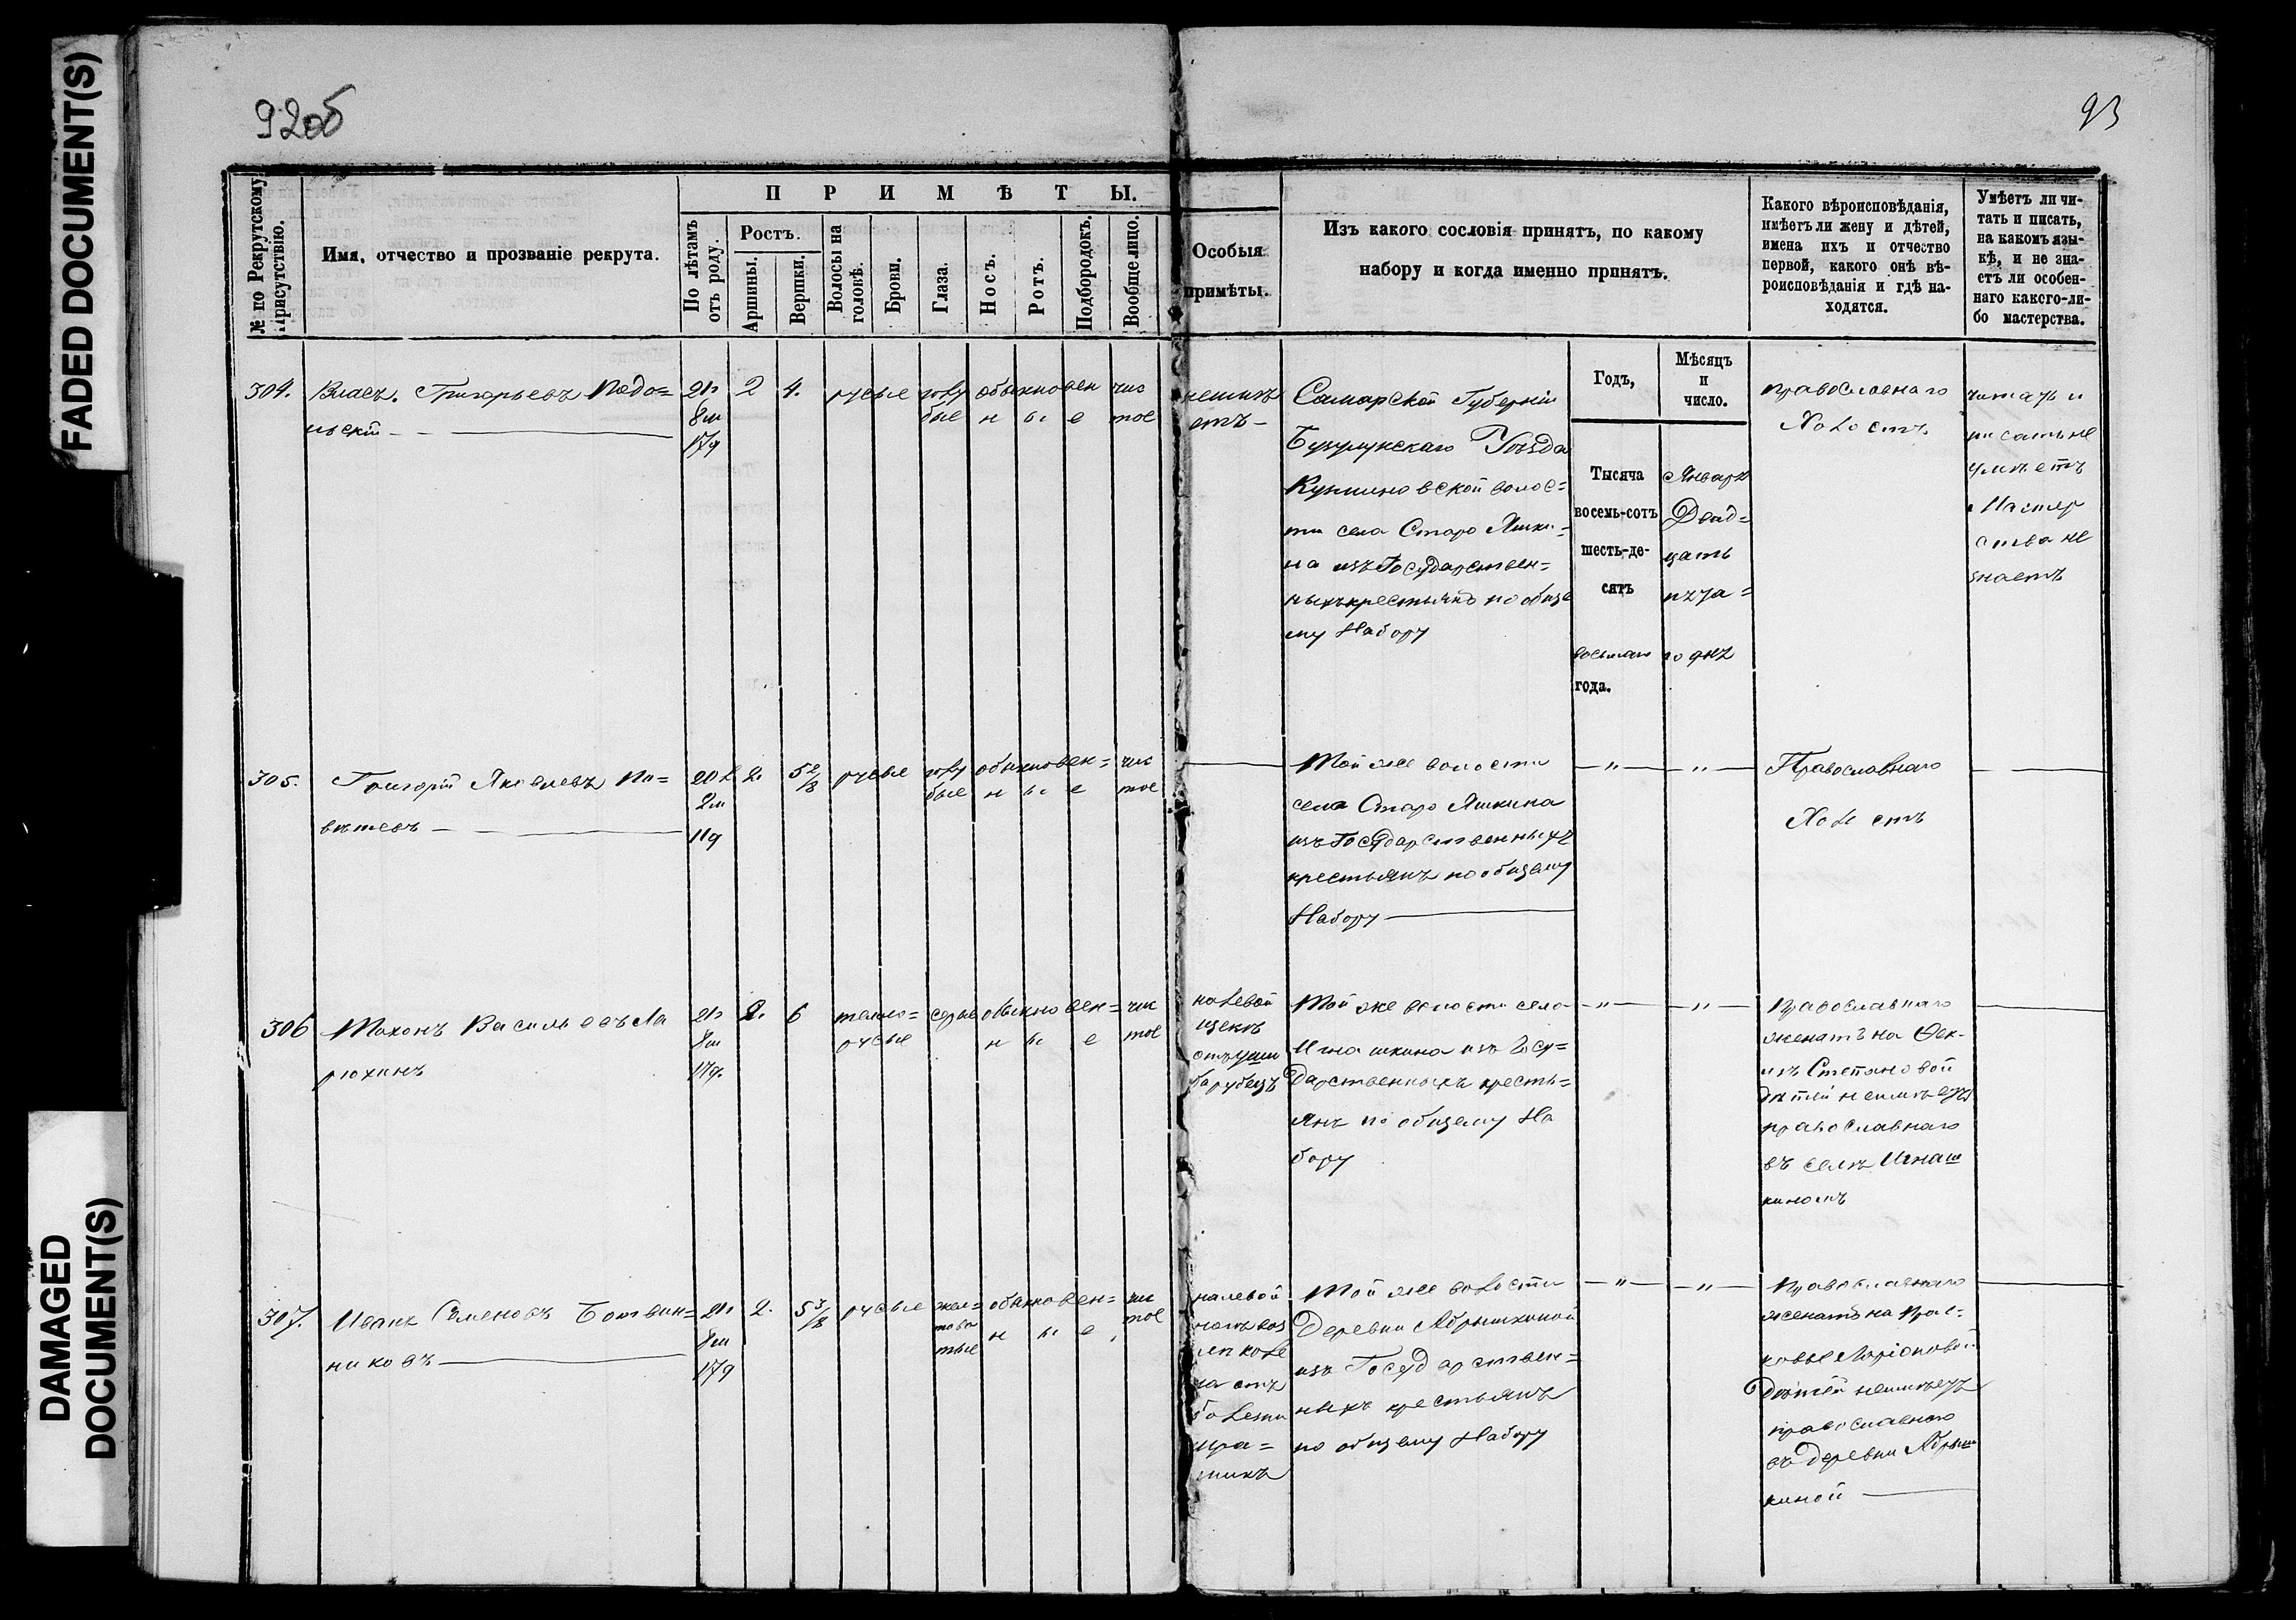 FADED DOCUMENT(S)
DAMAGED
DOCUMENT(S)
92об
93
№ по Рекрутскому
Присутствію.
Имя, отчество и прозваніе рекрута.
ПРИМѢТЫ.
По лѣтамъ
отъ роду.
Ростъ.
Аршины.
Вершки.
Волосы на
головѣ.
Брови.
Глаза.
Носъ.
Ротъ.
Подбородокъ.
Вообще лицо.
Особыя
примѣты.
Изъ какого сословія принятъ, по какому
набору и когда именно принятъ.
Какого вѣроисповѣданія,
имѣетъ ли жену и дѣтей,
имена ихъ и отчество
первой, какого онѣ вѣ-
роисповѣданія и гдѣ на-
ходятся.
Умѣетъ ли чи-
тать и писать,
на какомъ язы-
кѣ, и не зна-
етъ ли особен-
наго какого-ли-
бо мастерства.
304.
Власъ. Григорьевъ Подо=
льскій
21г
8м
17д
2
4.
русые
голу
бые
обыкновен
ные
чис
тое
неимѣ
етъ
Самарской Губерніи
Бузулукскаго Уѣзда
волос=
ти села Старо Яшки=
на изъ Государствен=
ныхъ крестьянъ по обще
му Набору
Годъ,
Тысяча
восемь-сотъ
шесть-де-
сятъ
восьмаго
года.
Мѣсяцъ
и
число.
Января
Двад=
цать
пята=
го дня
православнаго
Холостъ
читать и
писать не
умѣетъ
Мастер
ства не
знаетъ
305.
Григорій Яковлевъ По=
вѣтевъ
20 л
2м
11д
2.
5 2/8
русые
голу
бые
обыкновен=
ные
чис
тое
Той же волости
села Старо Яшкина
изъ Государственныхъ
крестьянъ по общему
Набору
„
„
Православнаго
Холостъ
306
Васильевъ Ла
рюхинъ
21г
8м
17д.
2.
6
темно=
русые
серые
обыкновен=
ные
чис
тое
на левой
щекѣ
отъ
рубецъ
Той же волости села
Игнашкина изъ Госу=
дарственныхъ кресть=
янъ по общему На
бору
„
„
Православнаго
женатъ на Фек-
лѣ Степановой
дѣтей неимѣетъ
православнаго
въ селѣ Игнаш
киномъ
307.
Иванъ Семеновъ Ботвин=
никовъ
21г
8м
17д
2.
5 3/8
русые
жел=
това
тые
обыкновен=
ные
чис
тое
на левой
ногѣ воз
лѣ коле
на отъ
болести
Той же волости
Деревни Абрышкиной
изъ Государствен=
ныхъ крестьянъ
по общему Набору
„
„
Православнаго
женатъ на Прас-
ковье Ларіоновой
Дѣтей неимѣетъ
православнаго
въ деревни Абрыш
киной